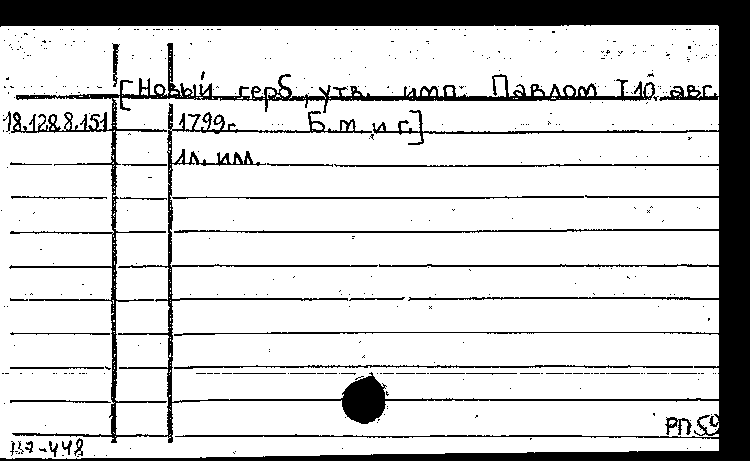 [Новый герб, утв. имп. Павлом I 10 авг.
18.128.8.151 1799г. Б. м. и г.]
1л. илл.
РП 59
-448